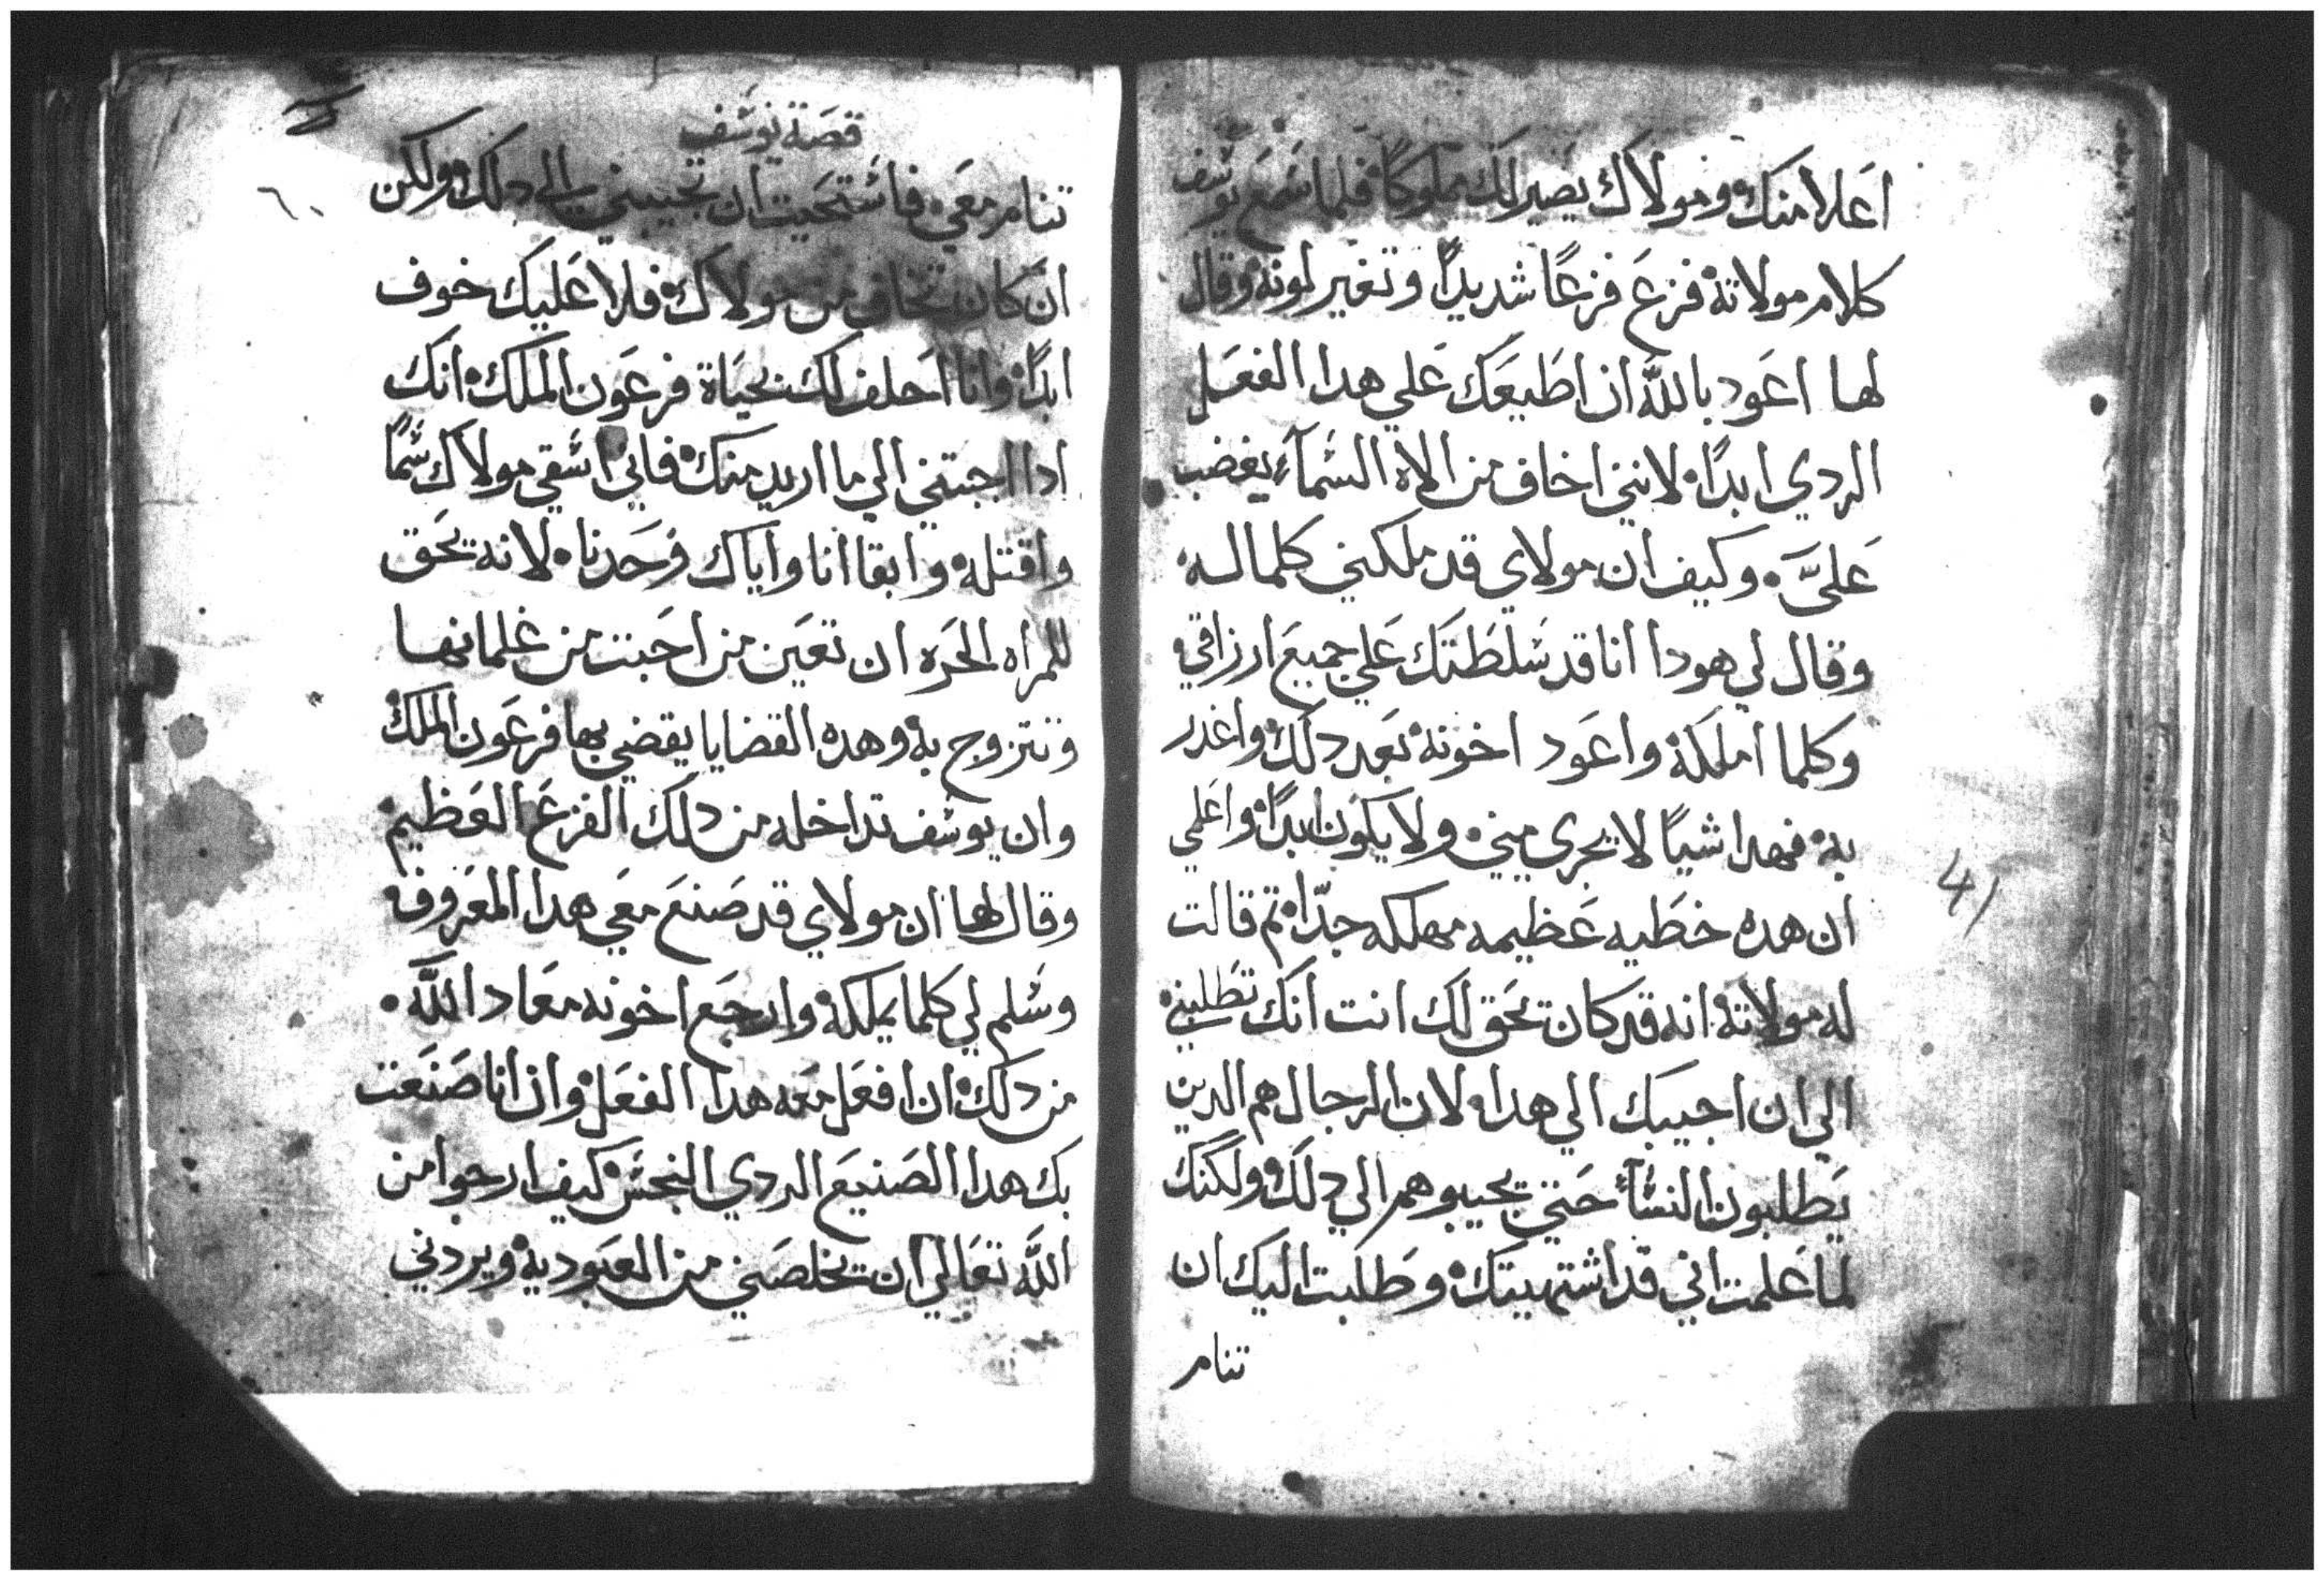 اعلا منك ومولاك يصير لك مملوكًا فلما سمع يوسف
كلام مولاته فزع فزعًا شديدًا وتغير لونه وقال
لها اعود بالله ان اطيعك علي هدا الفعل
الردي ابدًا لانني اخاف من الاه السمآء يغضب
عليَّ وكيف ان مولاي قد ملكني كلما له
وقال لي هودا انا قد سلطتك علي جميع ارزاقي
وكلما املكه واعود اخونه بعد دلك واغدر
به فهدا شيًا لا يجري مني ولا يكون ابدًا واعلمي
ان هده خطيه عظيمه مهلكه جدًا تم قالت
له مولاته انه قد كان تحق لك انت انك تطلبني
الي ان اجيبك الي هدا لان الرجال هم الدين
يطلبون النسآء حتي يجيبوهم الي دلك ولكنك
لما علمت اني قد اشتهيتك وطلبت اليك ان
تنام
41
قصة يوسف
٦٠
تنام معي فاستحيت ان تجيبني الي دلك ولكن
ان كان تخاف من مولاك فلا عليك خوف
ابدًا وانا احلف لك بحياة فرعون الملك انك
ادا اجبتني الي ما اريد منك فاني اسقي مولاك سمًا
واقتله وابقا انا واياك وحدنا لانه يحق
للمراه الحره ان تعين من احبت من غلمانها
وتتزوج به وهده القضايا يقضي بها فرعون الملك
وان يوسف تداخله من دلك الفزع العظيم
وقال لها ان مولاي قد صنع معي هدا المعروف
وسلم لي كلما يملكه وارجع اخونه معاد الله
من دلك ان افعل معه هدا الفعل وان انا صنعت
بك هدا الصنيع الردي النجس كيف ارجوا من
الله تعالي ان يخلصني من العبودية ويردني